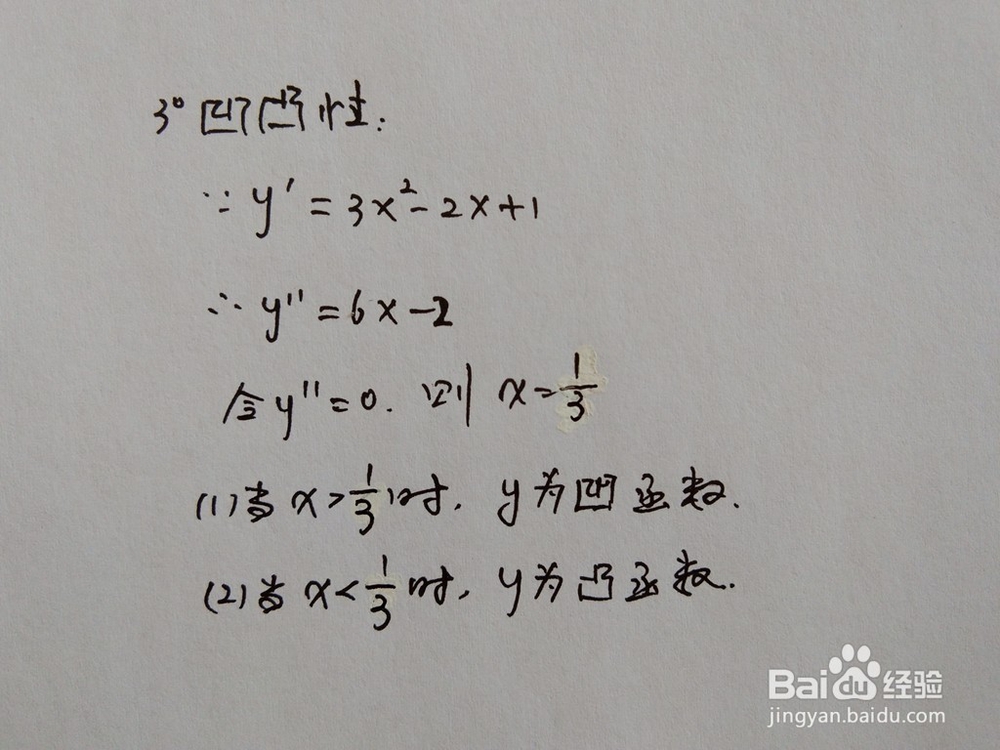 3° 凹凸性:
∵ y′ = 3x² - 2x + 1
∴ y″ = 6x - 2
令 y″ = 0. 则 x = 1/3
(1) 当 x > 1/3 时, y 为凹函数.
(2) 当 x < 1/3 时, y 为凸函数.
Baidu 经验
jingyan.baidu.com